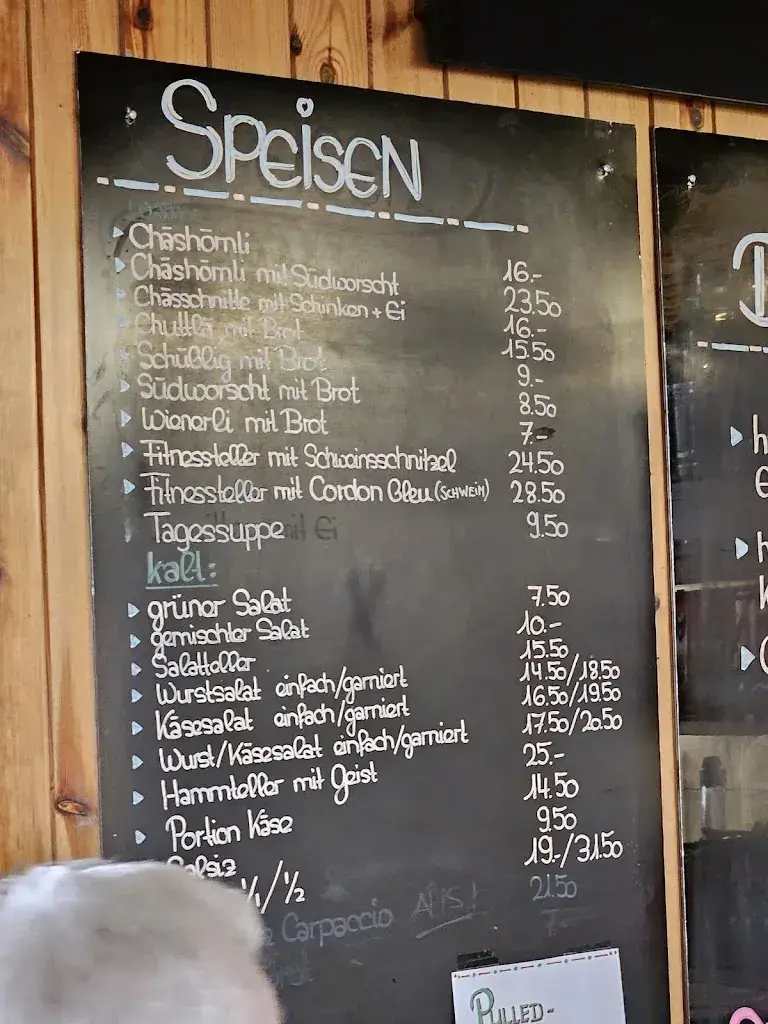 SPEISEN
Chäshörnli 16.-
Chäshörnli mit Südworscht 23.50
Chässchnitte mit Schinken + Ei 16.-
Chuttlä mit Brot 15.50
Schüblig mit Brot 9.-
Südworscht mit Brot 8.50
Wienerli mit Brot 7.-
Fitnessteller mit Schweinsschnitzel 24.50
Fitnessteller mit Cordon Bleu (SCHWEIN) 28.50
Tagessuppe 9.50
kalt:
grüner Salat 7.50
gemischter Salat 10.-
Salatteller 15.50
Wurstsalat einfach/garniert 14.50/18.50
Käsesalat einfach/garniert 16.50/19.50
Wurst/Käsesalat einfach/garniert 17.50/20.50
Hammteller mit Geist 25.-
Portion Käse 14.50
Salsiz 9.50
1/1/1/2 19.-/31.50
Carpaccio 21.50
PULLED-